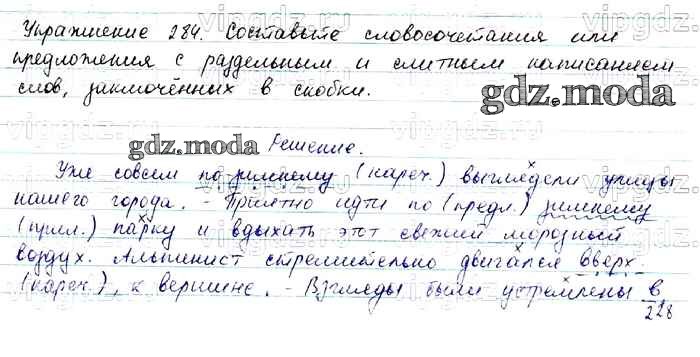 Упражнение 284. Составьте словосочетания или
предложения с раздельным и слитным написанием
слов, заключённых в скобки.
gdz.moda
gdz.moda
Решение.
Уже совсем по-зимнему (нареч.) выглядели улицы
нашего города. - Приятно идти по (предл.) зимнему
(прил.) парку и вдыхать этот свежий морозный
воздух. Альпинист стремительно двигался вверх
(нареч.), к вершине. - Взгляды были устремлены в
228